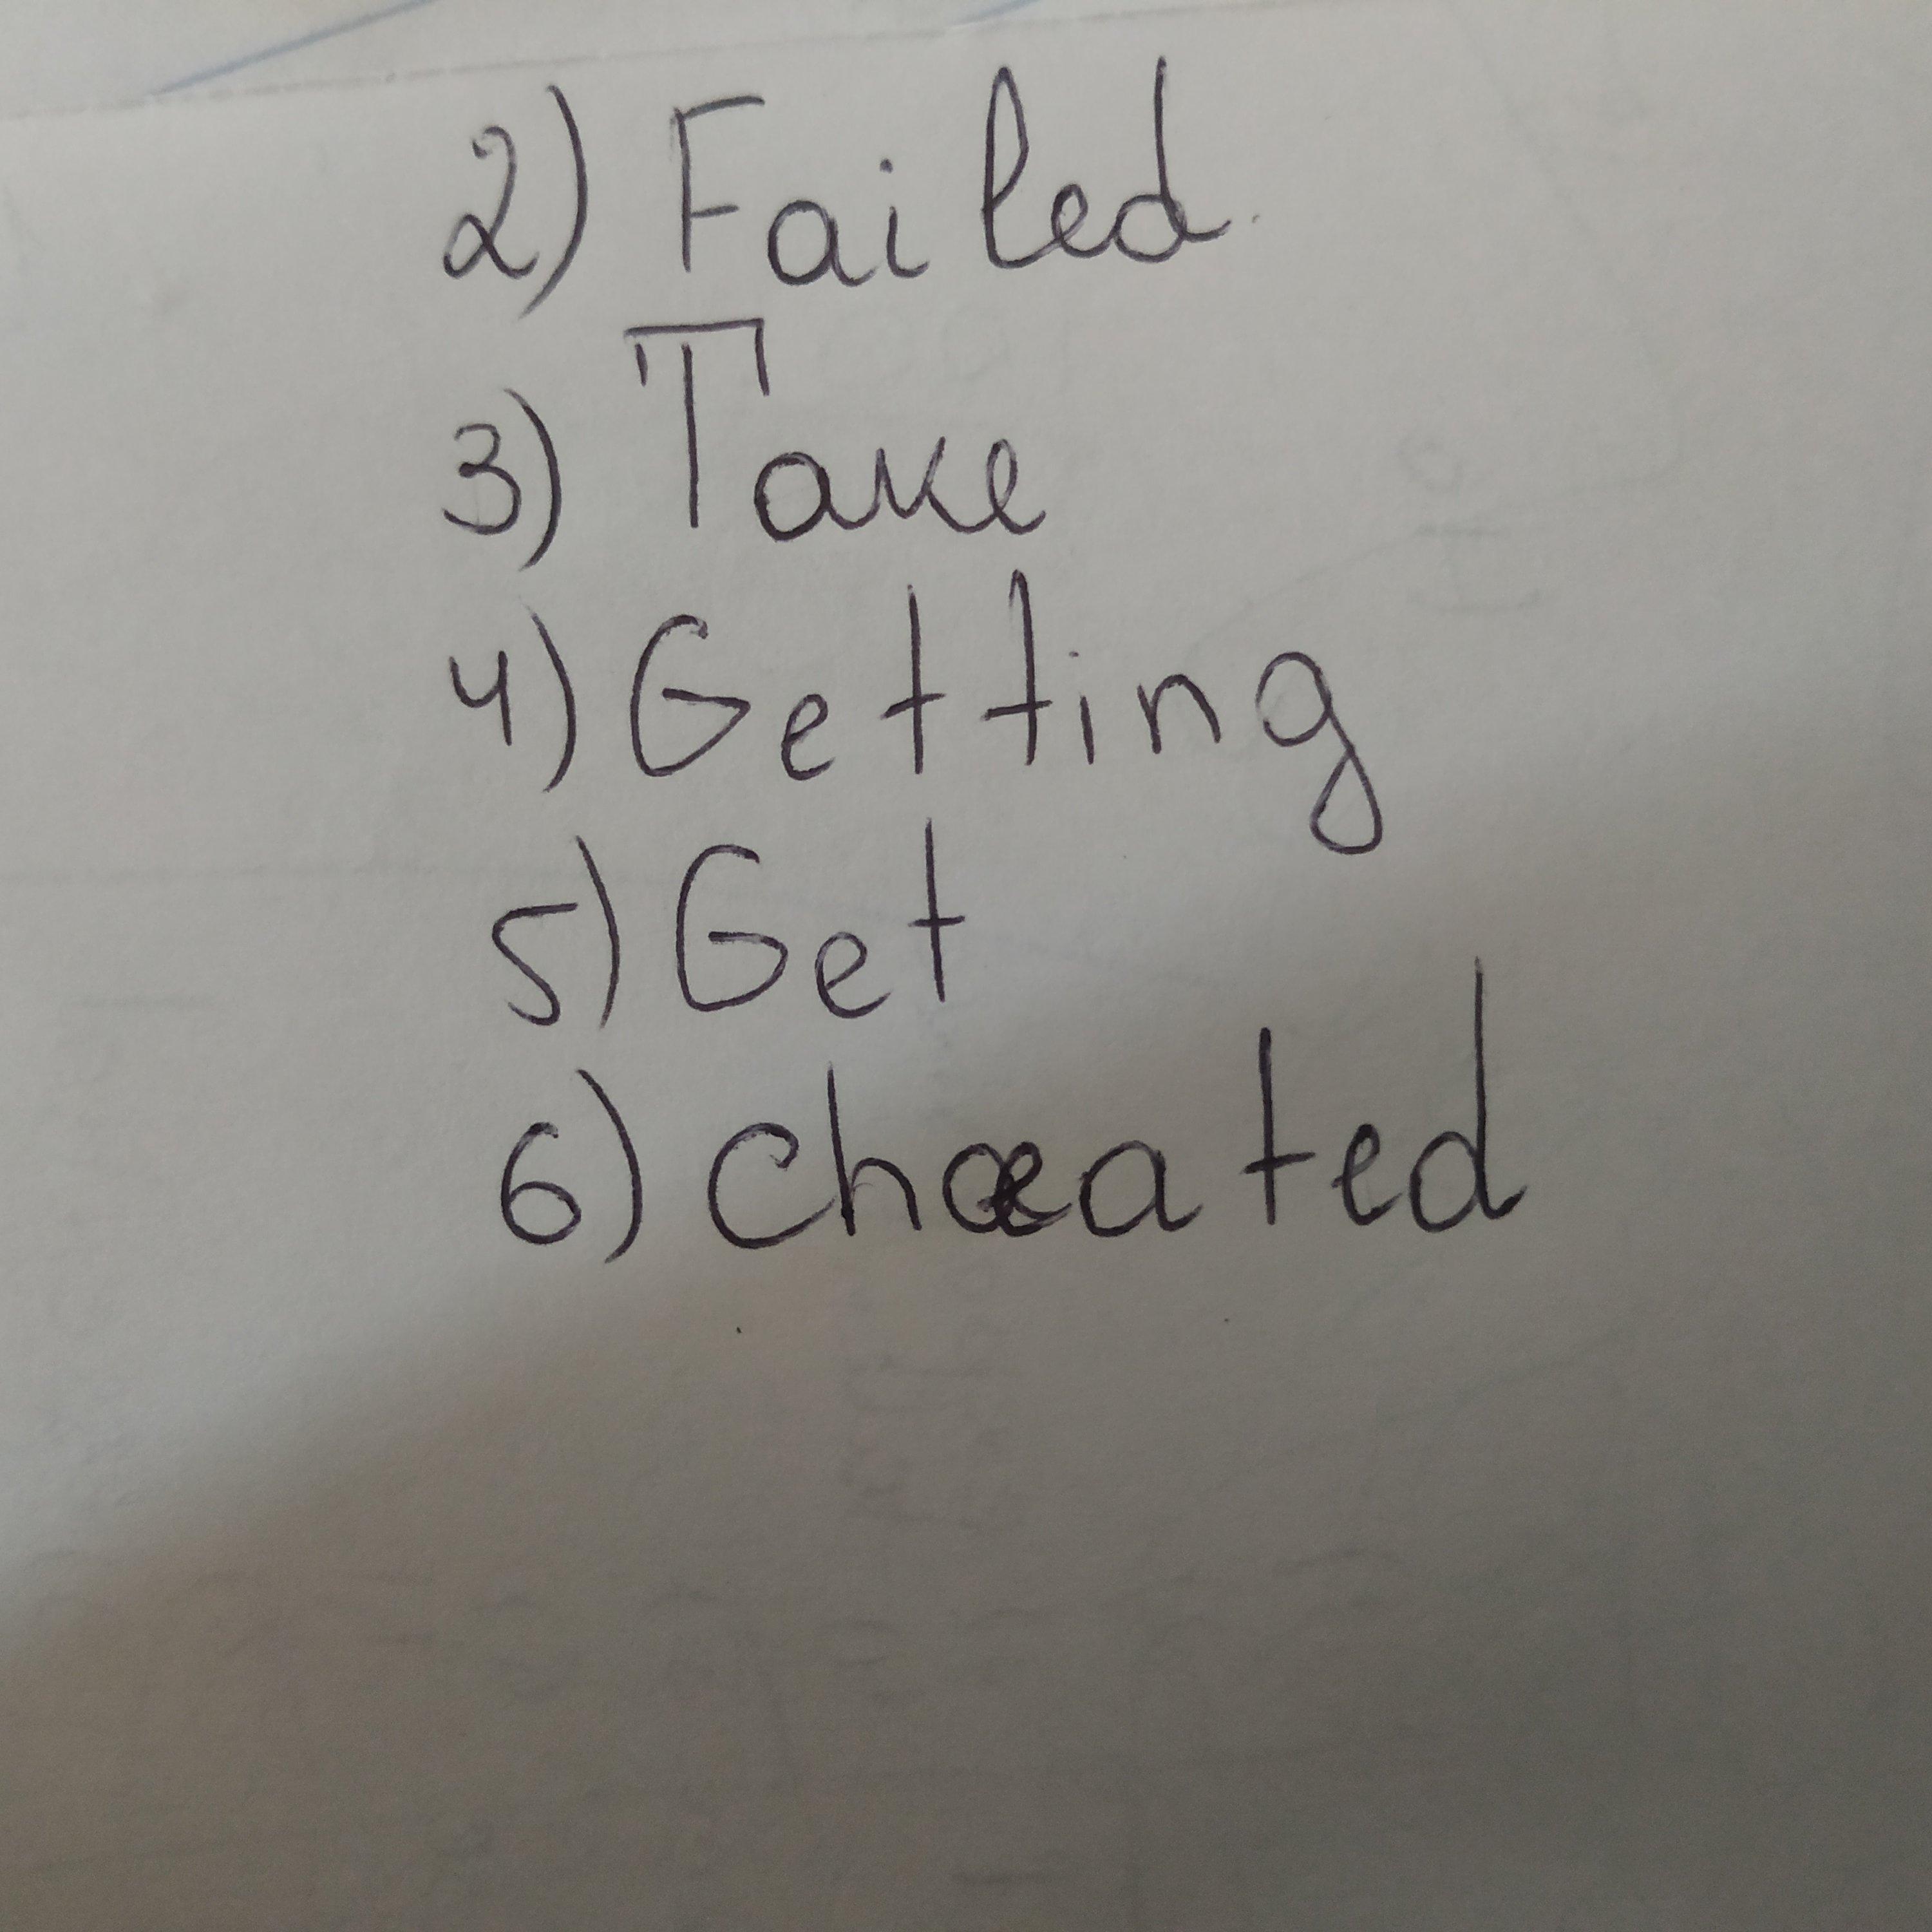 2) Failed
3) Take
4) Getting
5) Get
6) Cheated